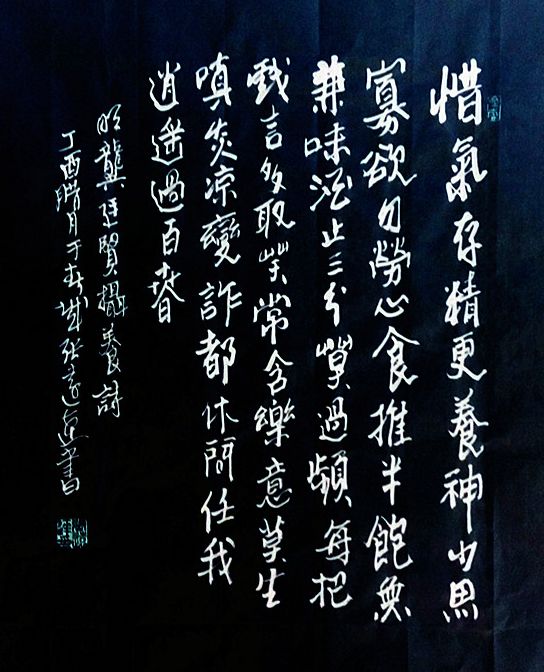 惜氣存精更養神少思
寡欲勿勞心食推半飽無
兼味酒止三分莫過頻每把
戲言多取笑常含樂意莫生
嗔炎凉變詐都休問任我
逍遥過百春
明龔廷賢攝養詩
丁酉腊月于春城張書